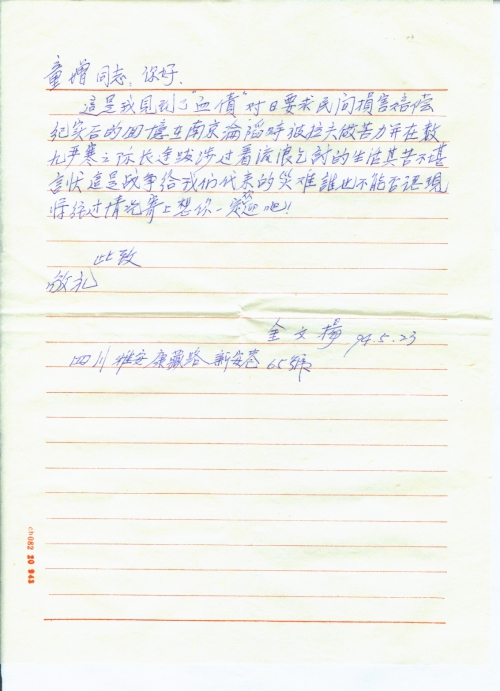 童增同志，你好，
這是我見到了"血債"对日要求民间損害赔偿
纪实后的回憶在南京淪陷時被拉夫做苦力并在数
九严寒之际长途跋涉过着流浪乞討的生活其苦不堪
言状這是战争给我们代来的災难誰也不能否認現
将经过情况寄上想你一定欢迎吧!!
此致
敬礼
金文揚 94.5.23
四川雅安康藏路新安巷65號
ch082 20 943